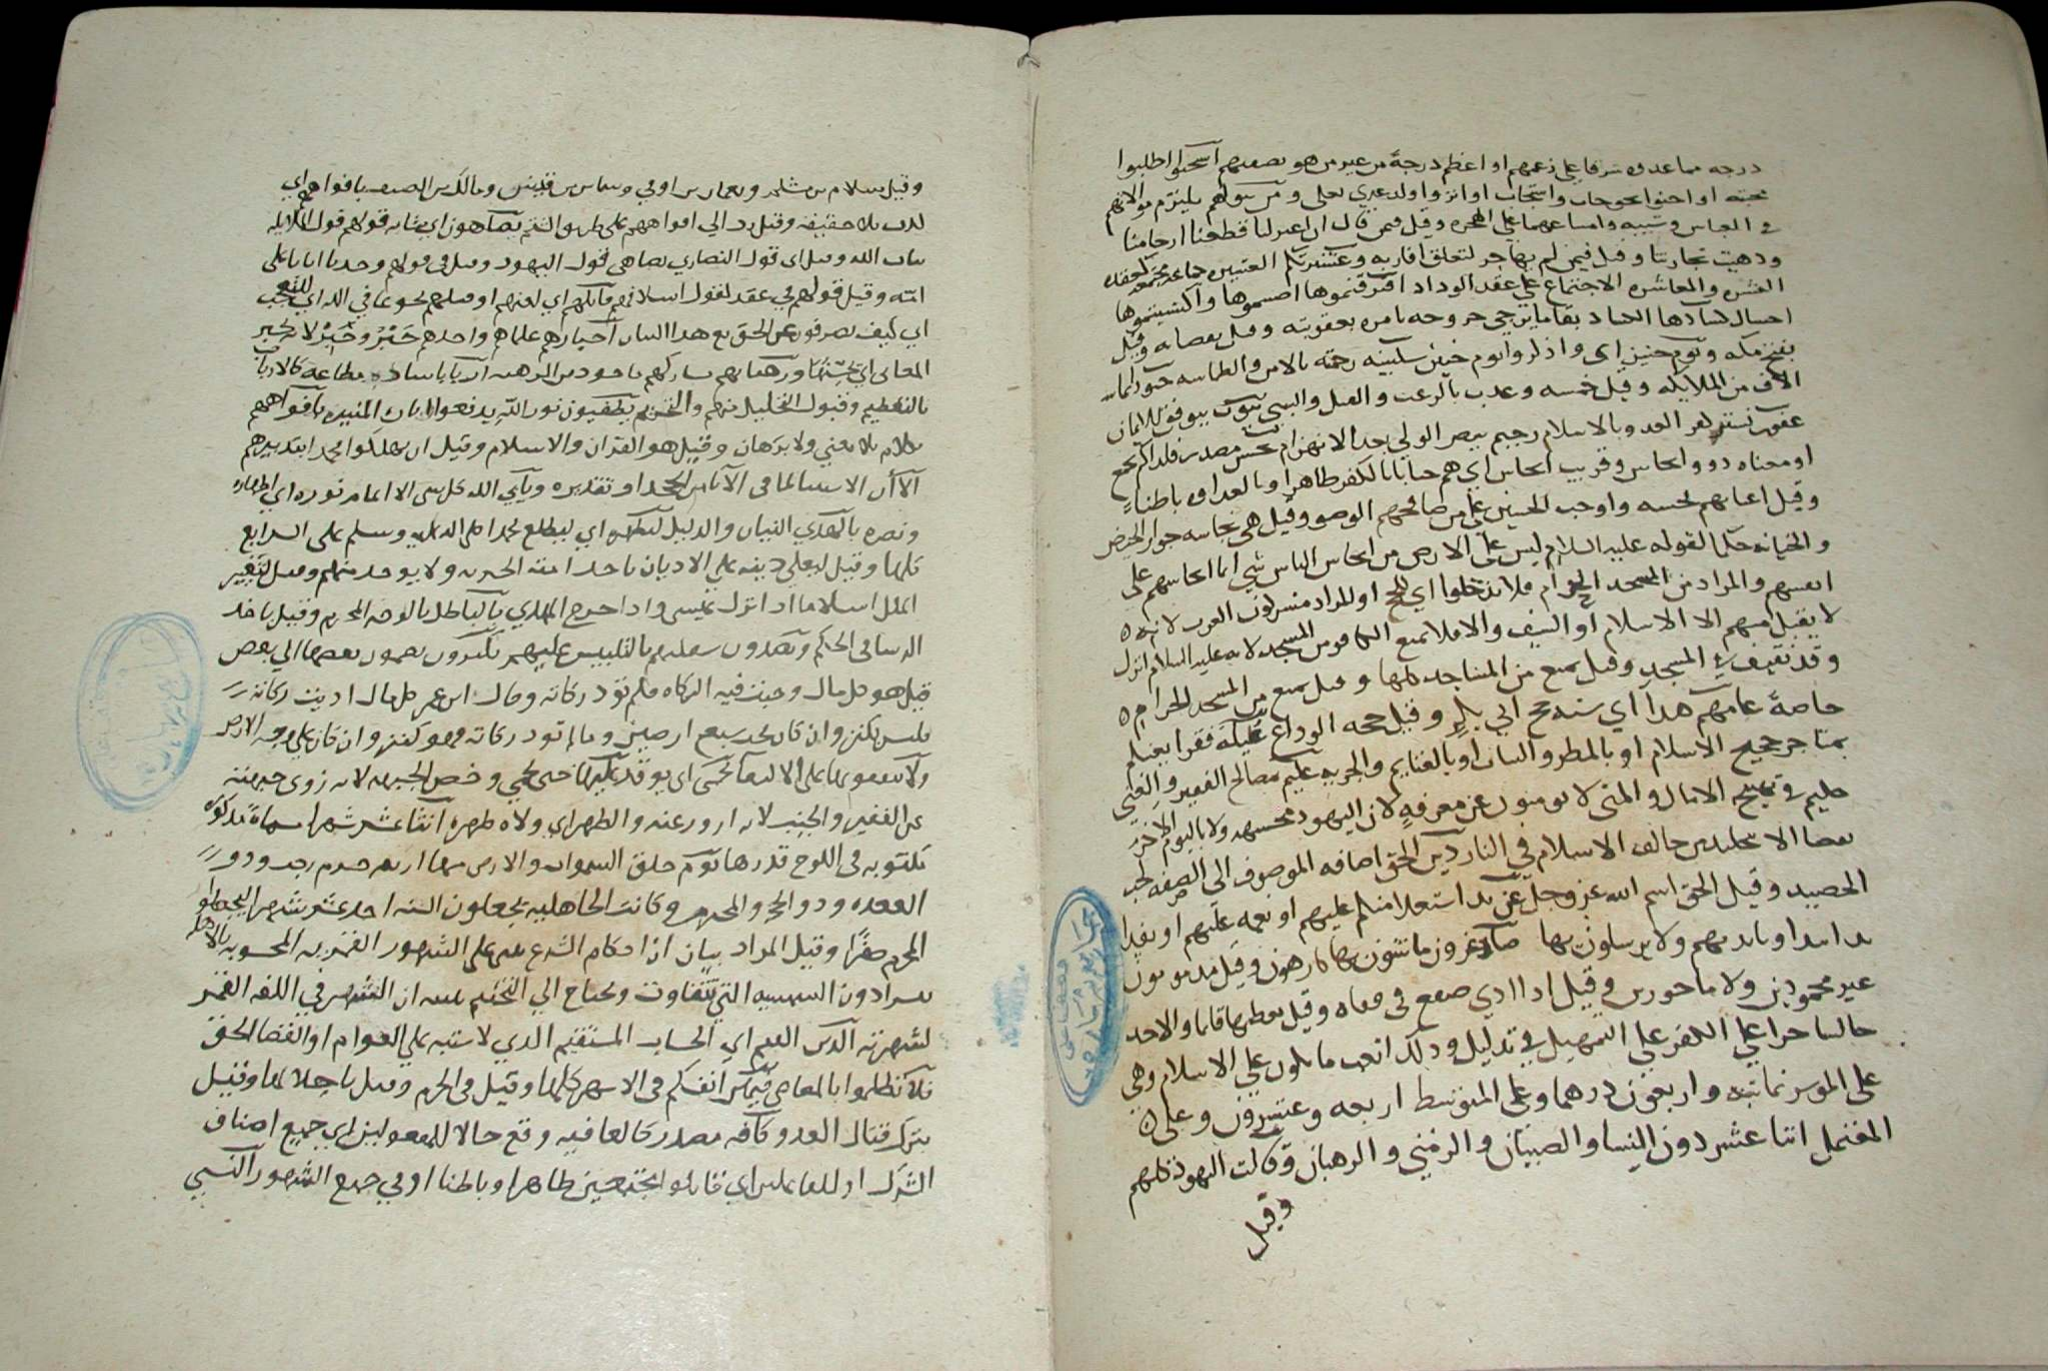 درجه مما عدوه شرفا على زعمهم او اعظم درجة من غير من هو بصفتهم استحبوا طلبوا
محبته او احبوا
في العباس وشيبه وامساعهما على الهجره وقيل فيمن قال ان اعتزلنا قطعنا ارحامنا
وذهبت تجارتنا وقيل فيمن لم يهاجر لتعلق اقاربه وعشيرتكم العشيره جماعة
العشره والمعاشره الاجتماع على عقد الوداد اقترفتموها اصبتموها واكتسبتموها
كسادها الكساد بقا ما يرجى خروجه بامره بعقوبته وقيل بقضايه وقيل
بفتح مكه ويوم حنين اي واذكروا يوم حنين سكينته رحمته بالامن والطمانينه جنودا ثمانيه
الاف من الملايكه وقيل خمسه وعذب بالرعب والقتل والسبي يتوب يوفق للايمان
غفور لستر كفر العدو بالاسلام رحيم بنصر الولي بعد الانهزام نجس مصدر فلذا لم يجمع
او معناه ذوو انجاس وقريب انجاس اي هم خبثا بالكفر ظاهرا وبالعداوه باطنا
وقيل اعيانهم نجسه واوجب الحسن على من صافحهم الوضو وقيل هي نجاسه
والخيانه حكما لقوله عليه السلام ليس على الارض من انجاس الناس شي انما انجاسهم على
انفسهم والمراد من المسجد الحرام فلا تدخلوا اي للحج او المراد مشركوا العرب لانه
لا يقبل منهم الا الاسلام او السيف والا فلا يمنع الكافر من المسجد لانه عليه السلام انزل
وفد ثقيف في المسجد وقيل يمنع من المساجد كلها وقيل يمنع من المسجد الحرام
خاصة عامهم هذا اي سنه حج ابي بكر وقيل حجه الوداع عيلة فقرا يغنيكم
بمتاجر حجيج الاسلام او بالمطر والنبات او بالغنايم والجزيه عليم بمصالح الفقير والغني
حكيم في الامال والمنى لا يومنون عن معرفة لان اليهود مجسمه ولا باليوم الاخر
من خالف الاسلام في النار دين الحق اضافه الموصوف الى الصفه كحب
الحصيد وقيل الحق اسم الله عز وجل عن يد استعلا منكم عليهم او نعمه عليهم او نقدا
يدا بيد او بايديهم ولا يرسلون بها صاغرون ماشون بها كارهون وقيل مذمومون
غير محمودين ولا ماجورين وقيل اذا ادى صفع في قفاه وقيل يعطيها قايما والاخذ
جالسا على الكفر على التسهيل في تذليل وذلك اتعب ما يكون على الاسلام وهي
على الموسر ثمانيه واربعون درهما وعلى المتوسط اربعه وعشرون وعلى
المعتمل اثنا عشر دون النسا والصبيان والزمنى والرهبان وقالت اليهود كلهم
وقيل
وقيل سلام بن مشكم ونعمان بن اوفى وشاس بن قيس ومالك بن الصيف بافواههم اي
كذب بلا حقيقه وقيل رد الى افواههم على طريق الشتم يضاهون اي يشابه قولهم قول الملايكه
بنات الله وقيل اي قول النصارى يضاهي قول اليهود وقيل في قولهم وجدنا اباءنا على
امة وقيل قولهم في عقد لقول اسلافهم قاتلهم اي لعنهم او قتلهم نحو عافى الله اي للتعجب
اي كيف يصرفون عن الحق مع هذا البيان احبارهم علماهم واحدهم حَبْر وحِبْر لانه يحبر
المعاني اي يحسنها ورهبانهم نساكهم ماخوذ من الرهبه اربابا سادة مطاعه كالارباب
بالتعظيم وقبول التحليل منهم والتحريم يطفيون نور الله يدفعوا البيان المنير بافواههم
بكلام بلا معنى ولا برهان وقيل هو القران والاسلام وقيل ان يهلكوا محمدا بتدبيرهم
الا ان الاستثنا لما في الابا من الجحد او تقديره ويابى الله كل شي الا اتمام نوره اي اظهاره
ونصره بالهدى البيان والدليل ليظهره اي ليطلع محمدا صلى الله عليه وسلم على الشرايع
كلها وقيل ليعلي دينه على الاديان باخذ امته الجزيه ولا يوخذ منهم وقيل لتصير
الملل اسلاما اذا نزل عيسى واذا خرج المهدي بالباطل بالوجه المحرم وقيل باخذ
الرشا في الحكم ويصدون سفلتهم بالتلبيس عليهم يكنزون يضمون بعضها الى بعض
قيل هو كل مال وجبت فيه الزكاه فلم تود زكاته وقال ابن عمر كل مال اديت زكاته
فليس بكنز وان كان تحت سبع ارضين وما لم تود زكاته فهو كنز وان كان على وجه الارض
ولا ينفقونها على يحمى اي يوقد عليها حتى تحمى وخص الجبهه لانه زوى جبهته
عن الفقير والجنب لانه ازور عنه والظهر اي ولاه ظهره اثنا عشر شهرا
مكتوبه في اللوح قدرها يوم خلق السموات والارض منها اربعه حرم رجب وذو
القعده وذو الحجه والمحرم وكانت الجاهليه يجعلون السنه احد عشر شهرا ليجعلوا
المحرم صفرا وقيل المراد بيان ان احكام الشرع تبنى على الشهور القمريه المحسوبه بالاهله
دون الشمسيه التي تتفاوت وتحتاج الى التنجيم ان الشهر في اللغه القمر
لشهرته الدين القيم اي الحساب المستقيم الذي لا يشتبه على العوام او القضا الحق
فلا تظلموا بالمعاصي فيهن انفسكم في الاشهر كلها وقيل في الحرم وقيل باحلالها وقيل
بترك قتال العدو كافه مصدر كالعافيه وقع حالا للمفعولين اي جميع اصناف
الشرك او للفاعلين اي قاتلوا مجتمعين ظاهرا وباطنا او في جميع الشهور النسي